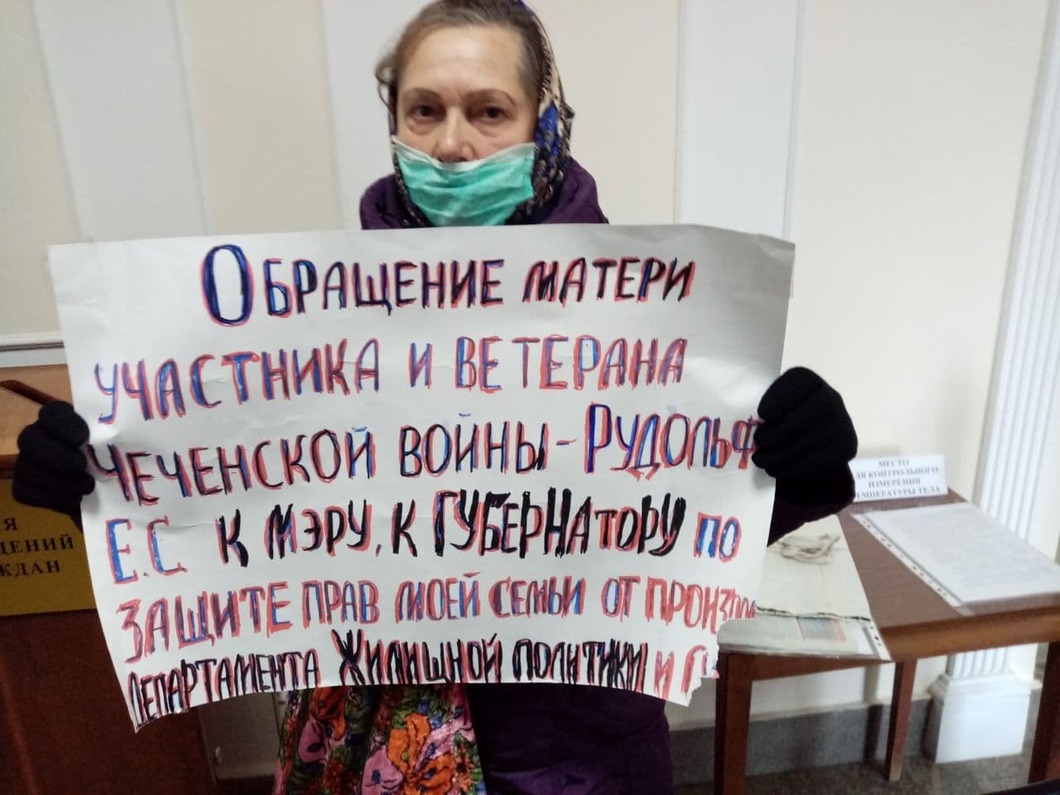 ОБРАЩЕНИЕ МАТЕРИ
УЧАСТНИКА И ВЕТЕРАНА
ЧЕЧЕНСКОЙ ВОЙНЫ-РУДОЛЬФ
Е.С. К МЭРУ, К ГУБЕРНАТОРУ ПО
ЗАЩИТЕ ПРАВ МОЕЙ СЕМЬИ ОТ
ДЕПАРТАМЕНТА ЖИЛИЩНОЙ ПОЛИТИКИ И
МЕСТО
КОНТРОЛЬНОГО
ИЗМЕРЕНИЯ
ТЕЛА